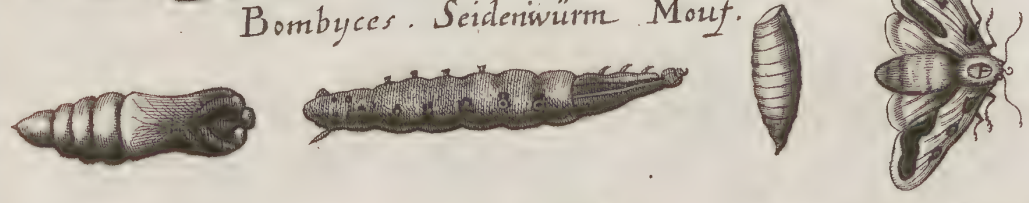 Bombyces. Seidenwürm Mouf.